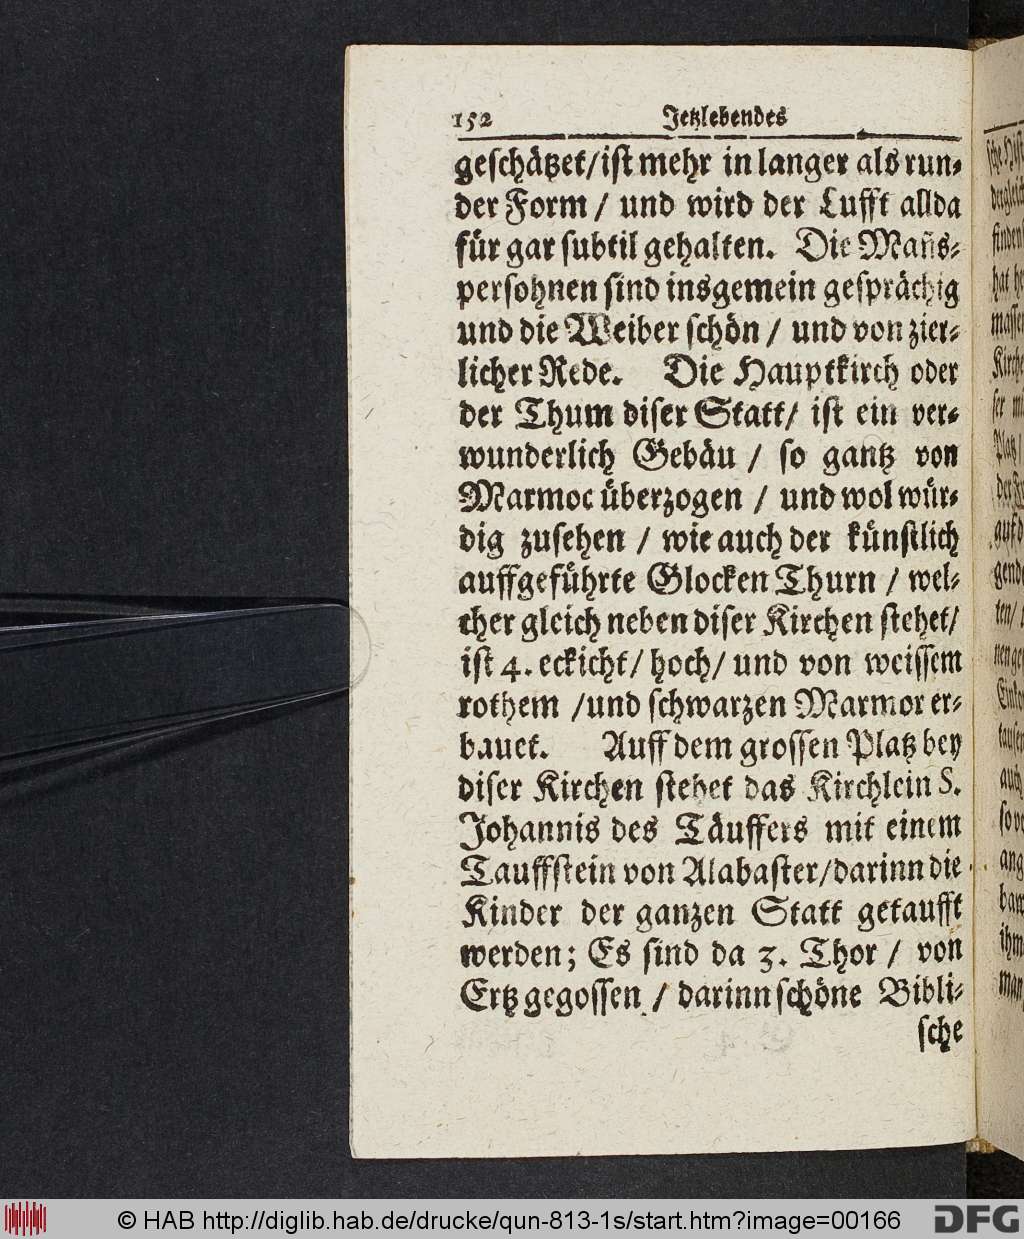 152 Jetzlebendes
geschätzet/ ist mehr in langer als run-
der Form / und wird der Lufft allda
für gar subtil gehalten. Die Mañs-
persohnen sind insgemein gesprächig
und die Weiber schön / und von zier-
licher Rede. Die Hauptkirch oder
der Thum diser Statt/ ist ein ver-
wunderlich Gebäu / so gantz von
Marmor überzogen / und wol wür-
dig zusehen / wie auch der künstlich
auffgeführte Glocken Thurn / wel-
cher gleich neben diser Kirchen stehet/
ist 4. eckicht/ hoch/ und von weissem
rothem /und schwarzen Marmor er-
bauet. Auff dem grossen Platz bey
diser Kirchen stehet das Kirchlein S.
Johannis des Täuffers mit einem
Tauffstein von Alabaster/darinn die
Kinder der ganzen Statt getaufft
werden; Es sind da 3. Thor / von
Ertz gegossen / darinn schöne Bibli-
sche
© HAB http://diglib.hab.de/drucke/qun-813-1s/start.htm?image=00166
DFG